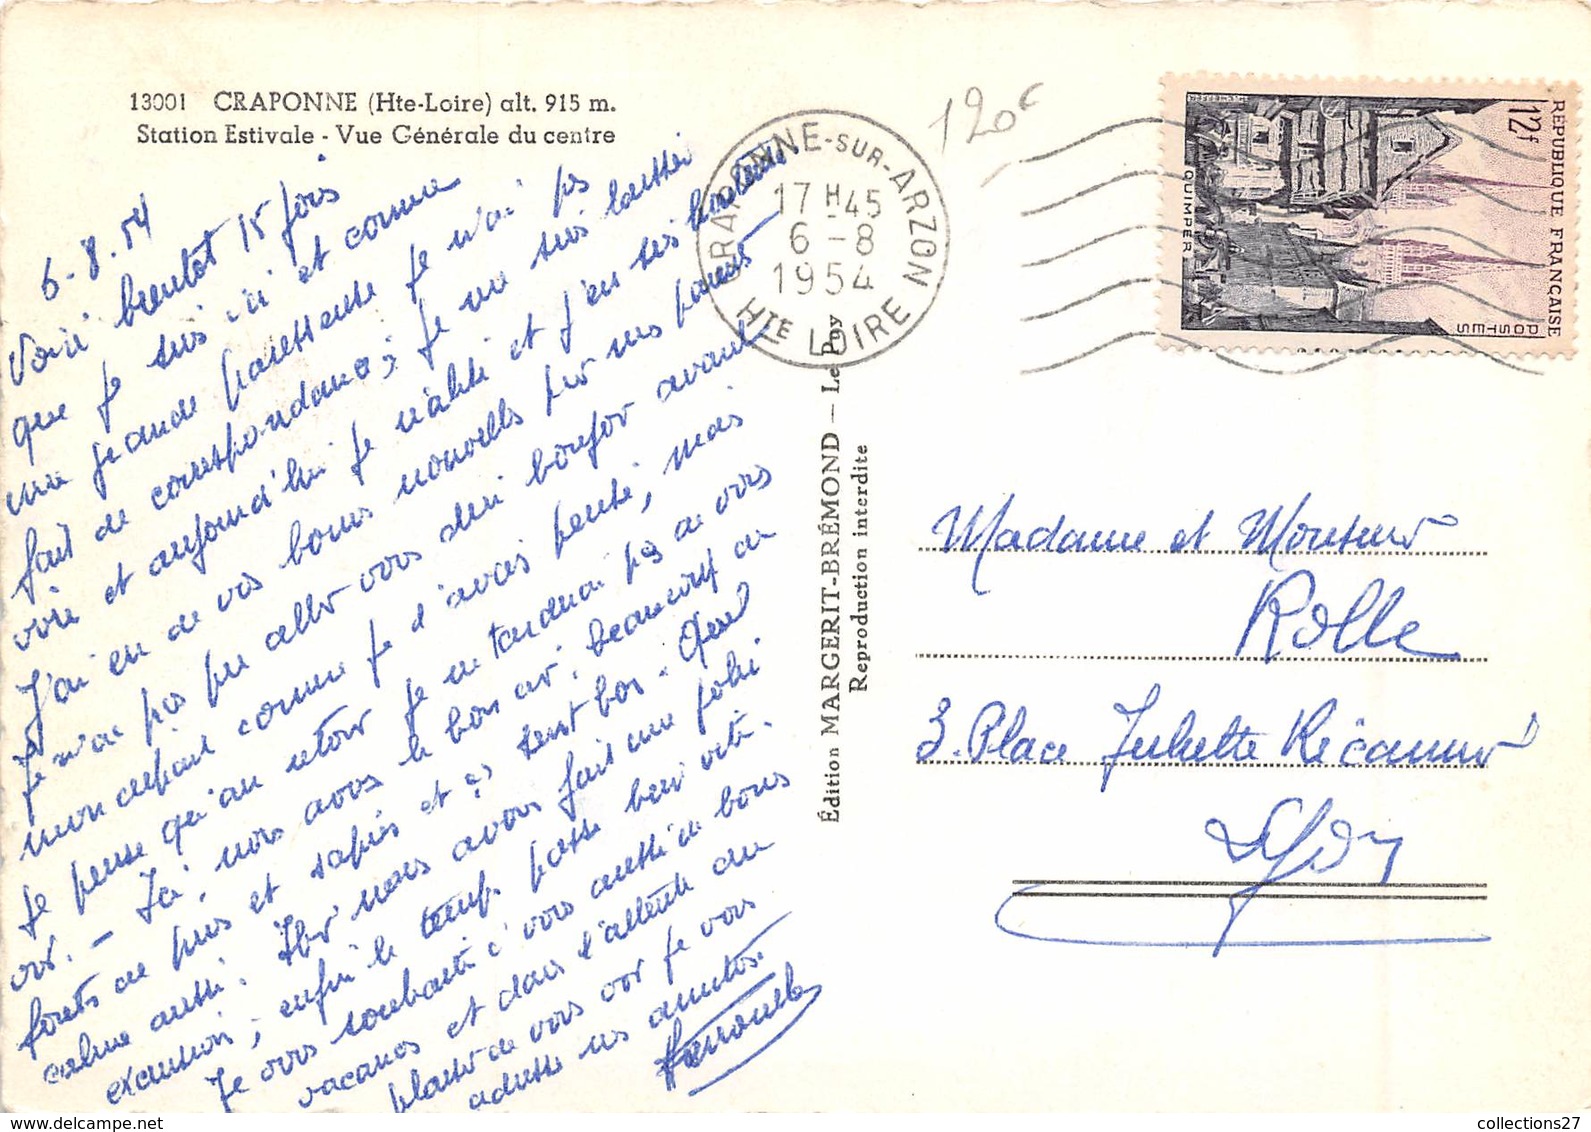 13001 CRAPONNE (Hte-Loire) alt. 915 m.
Station Estivale - Vue Générale du centre
6-8.54
Voici bientôt 15 jours
que je suis ici et comme
une grande paresseuse je n'ai pas
fait de correspondance; je me suis laissée
vivre et aujourd'hui je m'alite et j'en suis
J'ai eu de vos bonnes nouvelles par mes parents
Je n'ai pas pu aller vous dire bonjour avant
mon départ comme je l'avais pensé, mais
je pense qu'au retour je ne tarderai pas de vous
voir. - Ici, nous avons le bon air, beaucoup de
forêts de pins et sapins et ça sent bon. Quel
calme aussi. Hier nous avons fait une jolie
excursion; enfin le temps passe bien vite.
Je vous souhaite à vous aussi de bonnes
vacances et dans l'attente du
plaisir de vous voir je vous
adresse mes amitiés.
CRAPONNE-SUR-ARZON
17H45
6-8
1954
HTE LOIRE
120c
REPUBLIQUE FRANÇAISE
12f
POSTES
QUIMPER
Édition MARGERIT-BRÉMOND - Le Puy
Reproduction interdite
Madame et Monsieur
Rolle
3. Place Juliette Récamier
Lyon
collections27